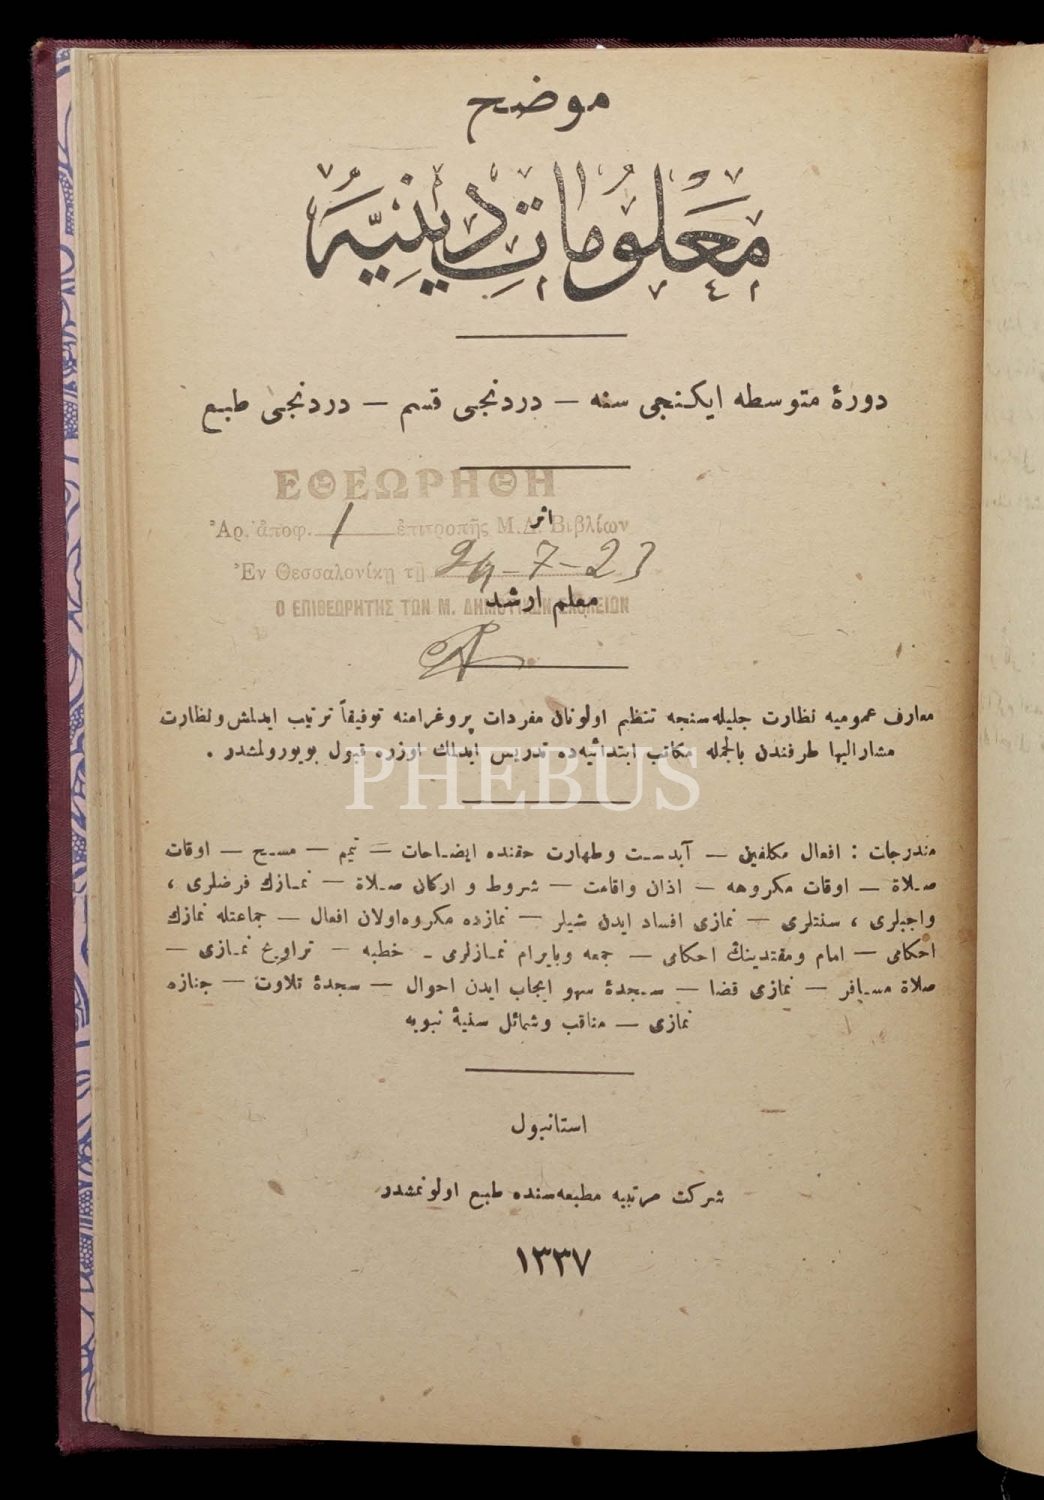 موضح
معلومات دينيه
دورهٔ متوسطه ايكنجى سنه — دردنجى قسم — دردنجى طبع
ΕΘΕΩΡΗΘΗ
Ἀρ. ἀποφ. 1 ἐπιτροπῆς Μ.Δ. Βιβλίων
اثر
Ἐν Θεσσαλονίκῃ τῇ 24-7-23
معلم ارشد
Ο ΕΠΙΘΕΩΡΗΤΗΣ ΤΩΝ Μ. ΔΗΜΟΤΙΚΩΝ ΣΧΟΛΕΙΩΝ
معارف عموميه نظارت جليله‌سنجه تنظيم اولونان مفردات پروغرامنه توفيقاً ترتيب ايدلمش و نظارت
مشاراليها طرفندن بالجمله مكاتب ابتدائيه‌ده تدريس ايدلمك اوزره قبول بويورولمشدر .
PHEBUS
مندرجات : افعال مكلفين — آبدست و طهارت حقنده ايضاحات — تيمم — مسح — اوقات
صلاة — اوقات مكروهه — اذان واقامت — شروط و اركان صلاة — نمازك فرضلرى ،
واجبلرى ، سنتلرى — نمازى افساد ايدن شيلر — نمازده مكروه اولان افعال — جماعتله نمازك
احكامى — امام ومقتدينك احكامى — جمعه وبايرام نمازلرى — خطبه — تراويح نمازى —
صلاة مسافر — نمازى قضا — سجدهٔ سهو ايجاب ايدن احوال — سجدهٔ تلاوت — جنازه
نمازى — مناقب وشمائل سنيهٔ نبويه
استانبول
شركت مرتبيه مطبعه‌سنده طبع اولونمشدر
١٣٣٧